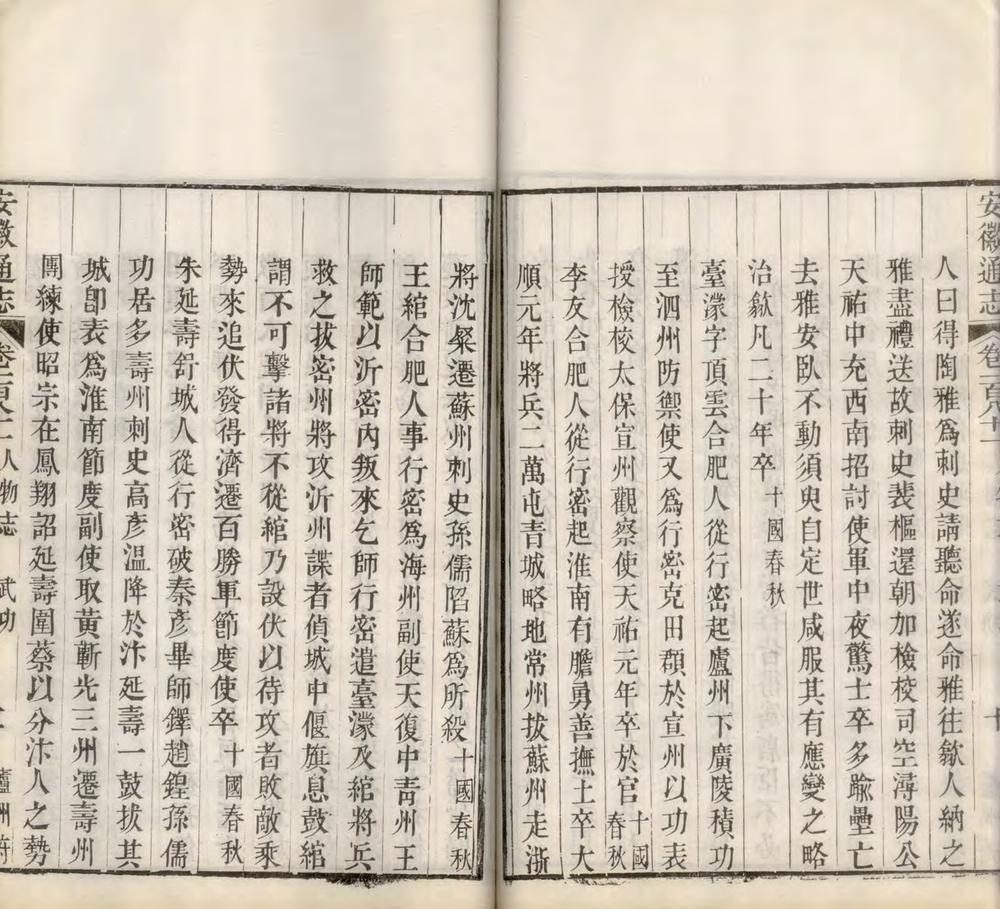 安徽通志 卷二百六十二
人曰得陶雅爲刺史請聽命遂命雅往歙人納之
雅盡禮送故刺史裴樞還朝加檢校司空潯陽公
天祐中充西南招討使軍中夜驚士卒多踰壘亡
去雅安臥不動須臾自定世咸服其有應變之略
治歙凡二十年卒十國春秋
臺濛字頂雲合肥人從行密起廬州下廣陵積功
至泗州防禦使又爲行密克田頵於宣州以功表
授檢校太保宣州觀察使天祐元年卒於官十國春秋
李友合肥人從行密起淮南有膽勇善撫士卒大
順元年將兵二萬屯青城略地常州拔蘇州走浙
將沈粲遷蘇州刺史孫儒陷蘇爲所殺十國春秋
王綰合肥人事行密爲海州副使天復中靑州王
師範以沂密內叛來乞師行密遣臺濛及綰將兵
救之拔密州將攻沂州諜者偵城中偃旗息鼓綰
謂不可擊諸將不從綰乃設伏以待攻者敗敵乘
勢來追伏發得濟遷百勝軍節度使卒十國春秋
朱延壽舒城人從行密破秦彥畢師鐸趙鍠孫儒
功居多壽州刺史高彥溫降於汴延壽一鼓拔其
城卽表爲淮南節度副使取黃蘄光三州遷壽州
團練使昭宗在鳳翔詔延壽圍蔡以分汴人之勢
安徽通志 人物志 武功 廬州府